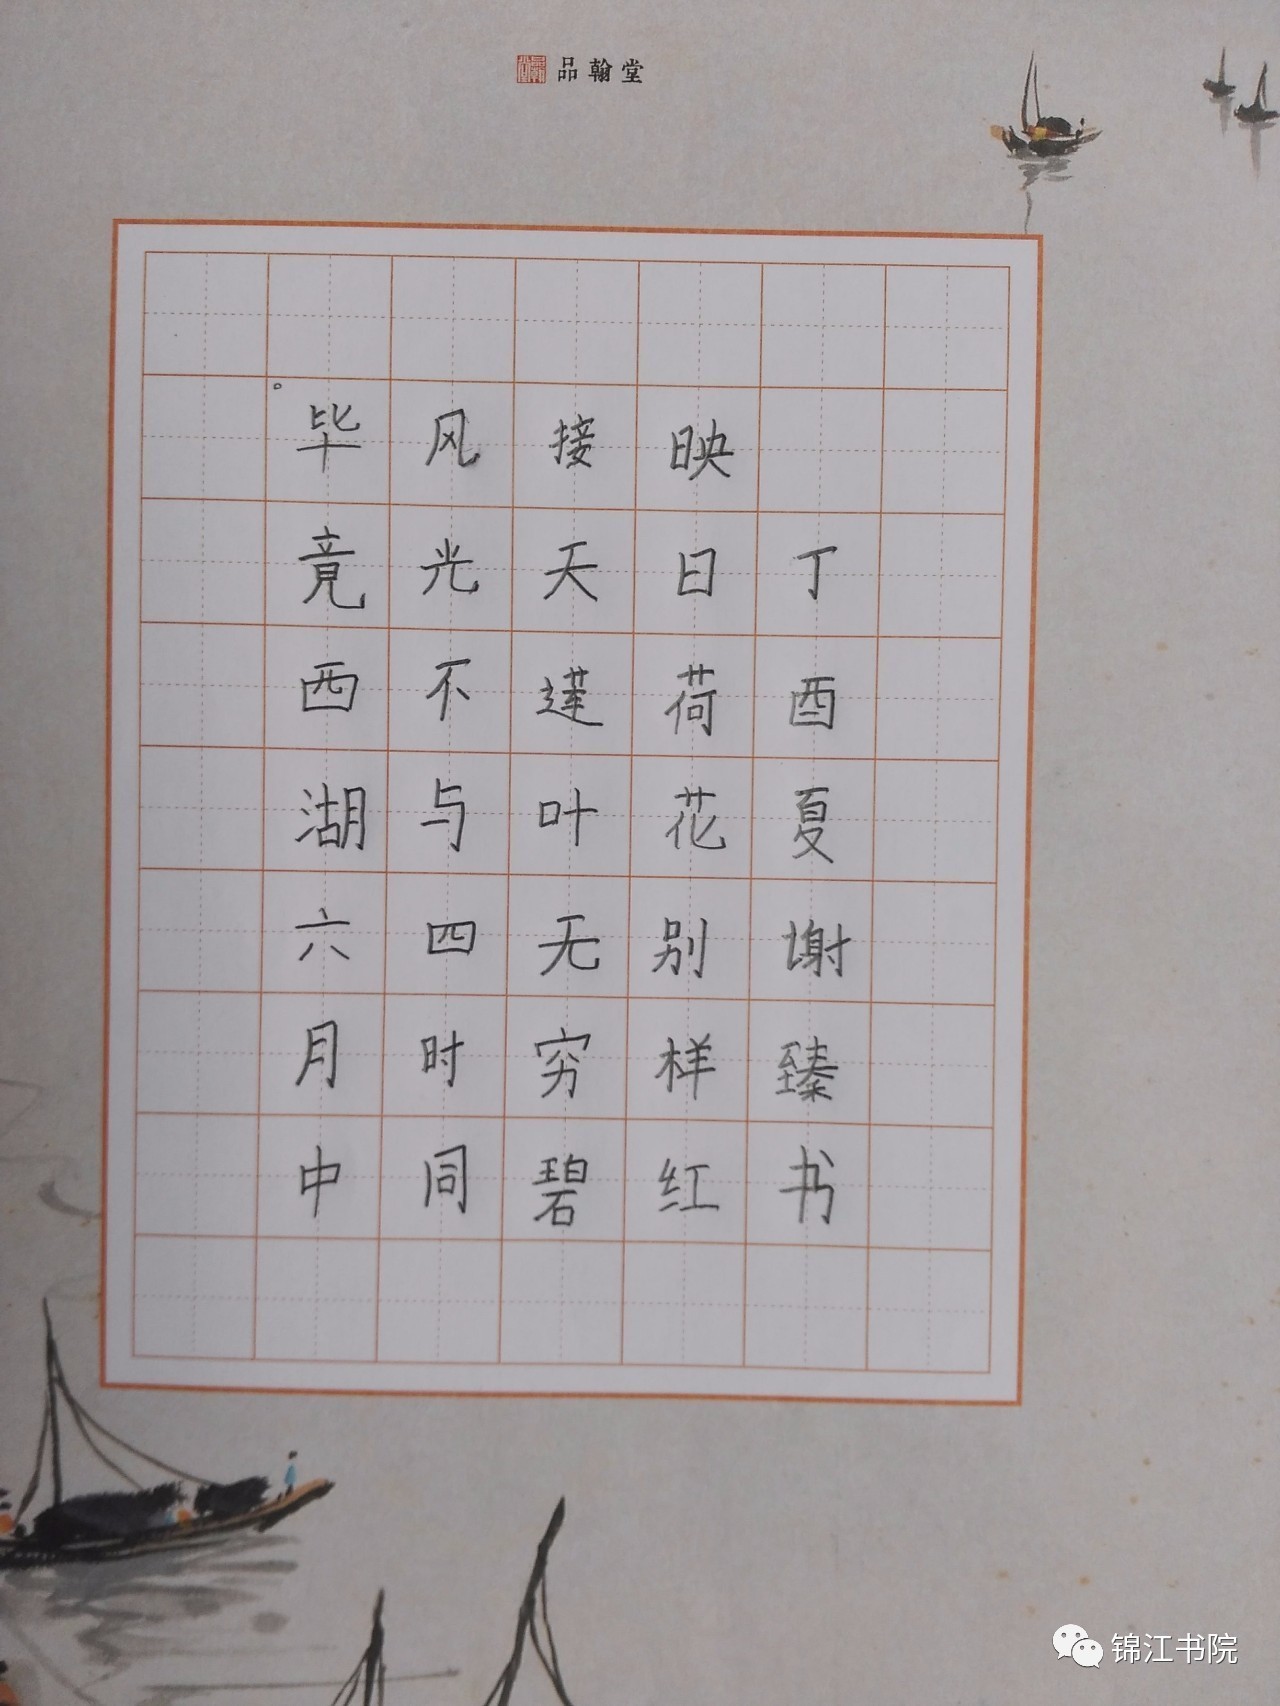 品翰堂
毕竟西湖六月中
风光不与四时同
接天莲叶无穷碧
映日荷花别样红
丁酉夏谢臻书
锦江书院